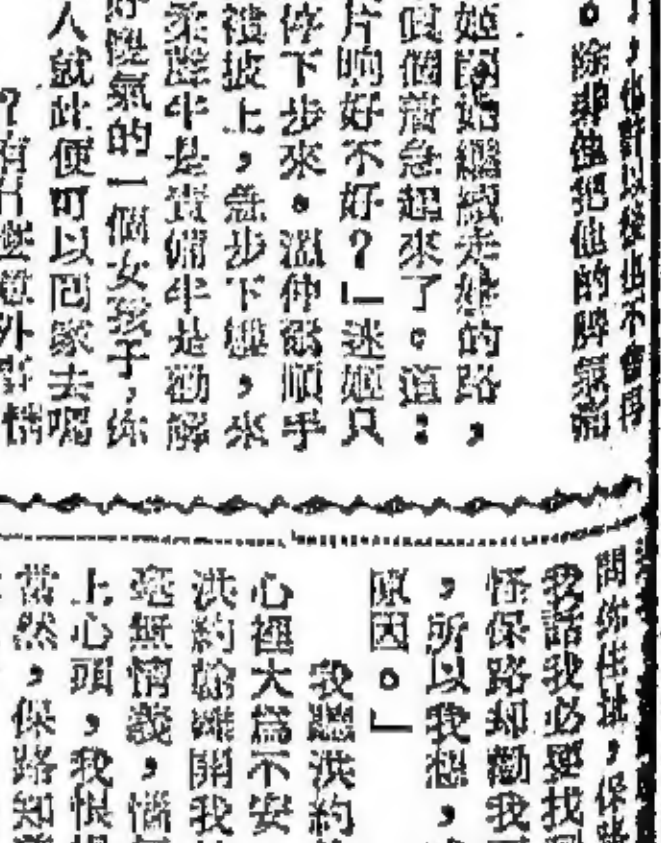 ，也許以後也不會再
。除非他把他的脾氣
姬開始繼續走她的路，
真個着急起來了。道：
片晌好不好？」迷姬只
停下步來。溫仲 順手
褸披上，急步下 ，來
柔聲半是責備半是勸解
好脾氣的一個女孩子，你
人就此便可以回家去呢
外 情
問你住址，保
我話我必要找
怪保路却勸我
，所以我想，
原因。」
我聽洪約
心裡大爲不安
洪約 開我
毫無情義，惱
上心頭，我恨
當然，保路知